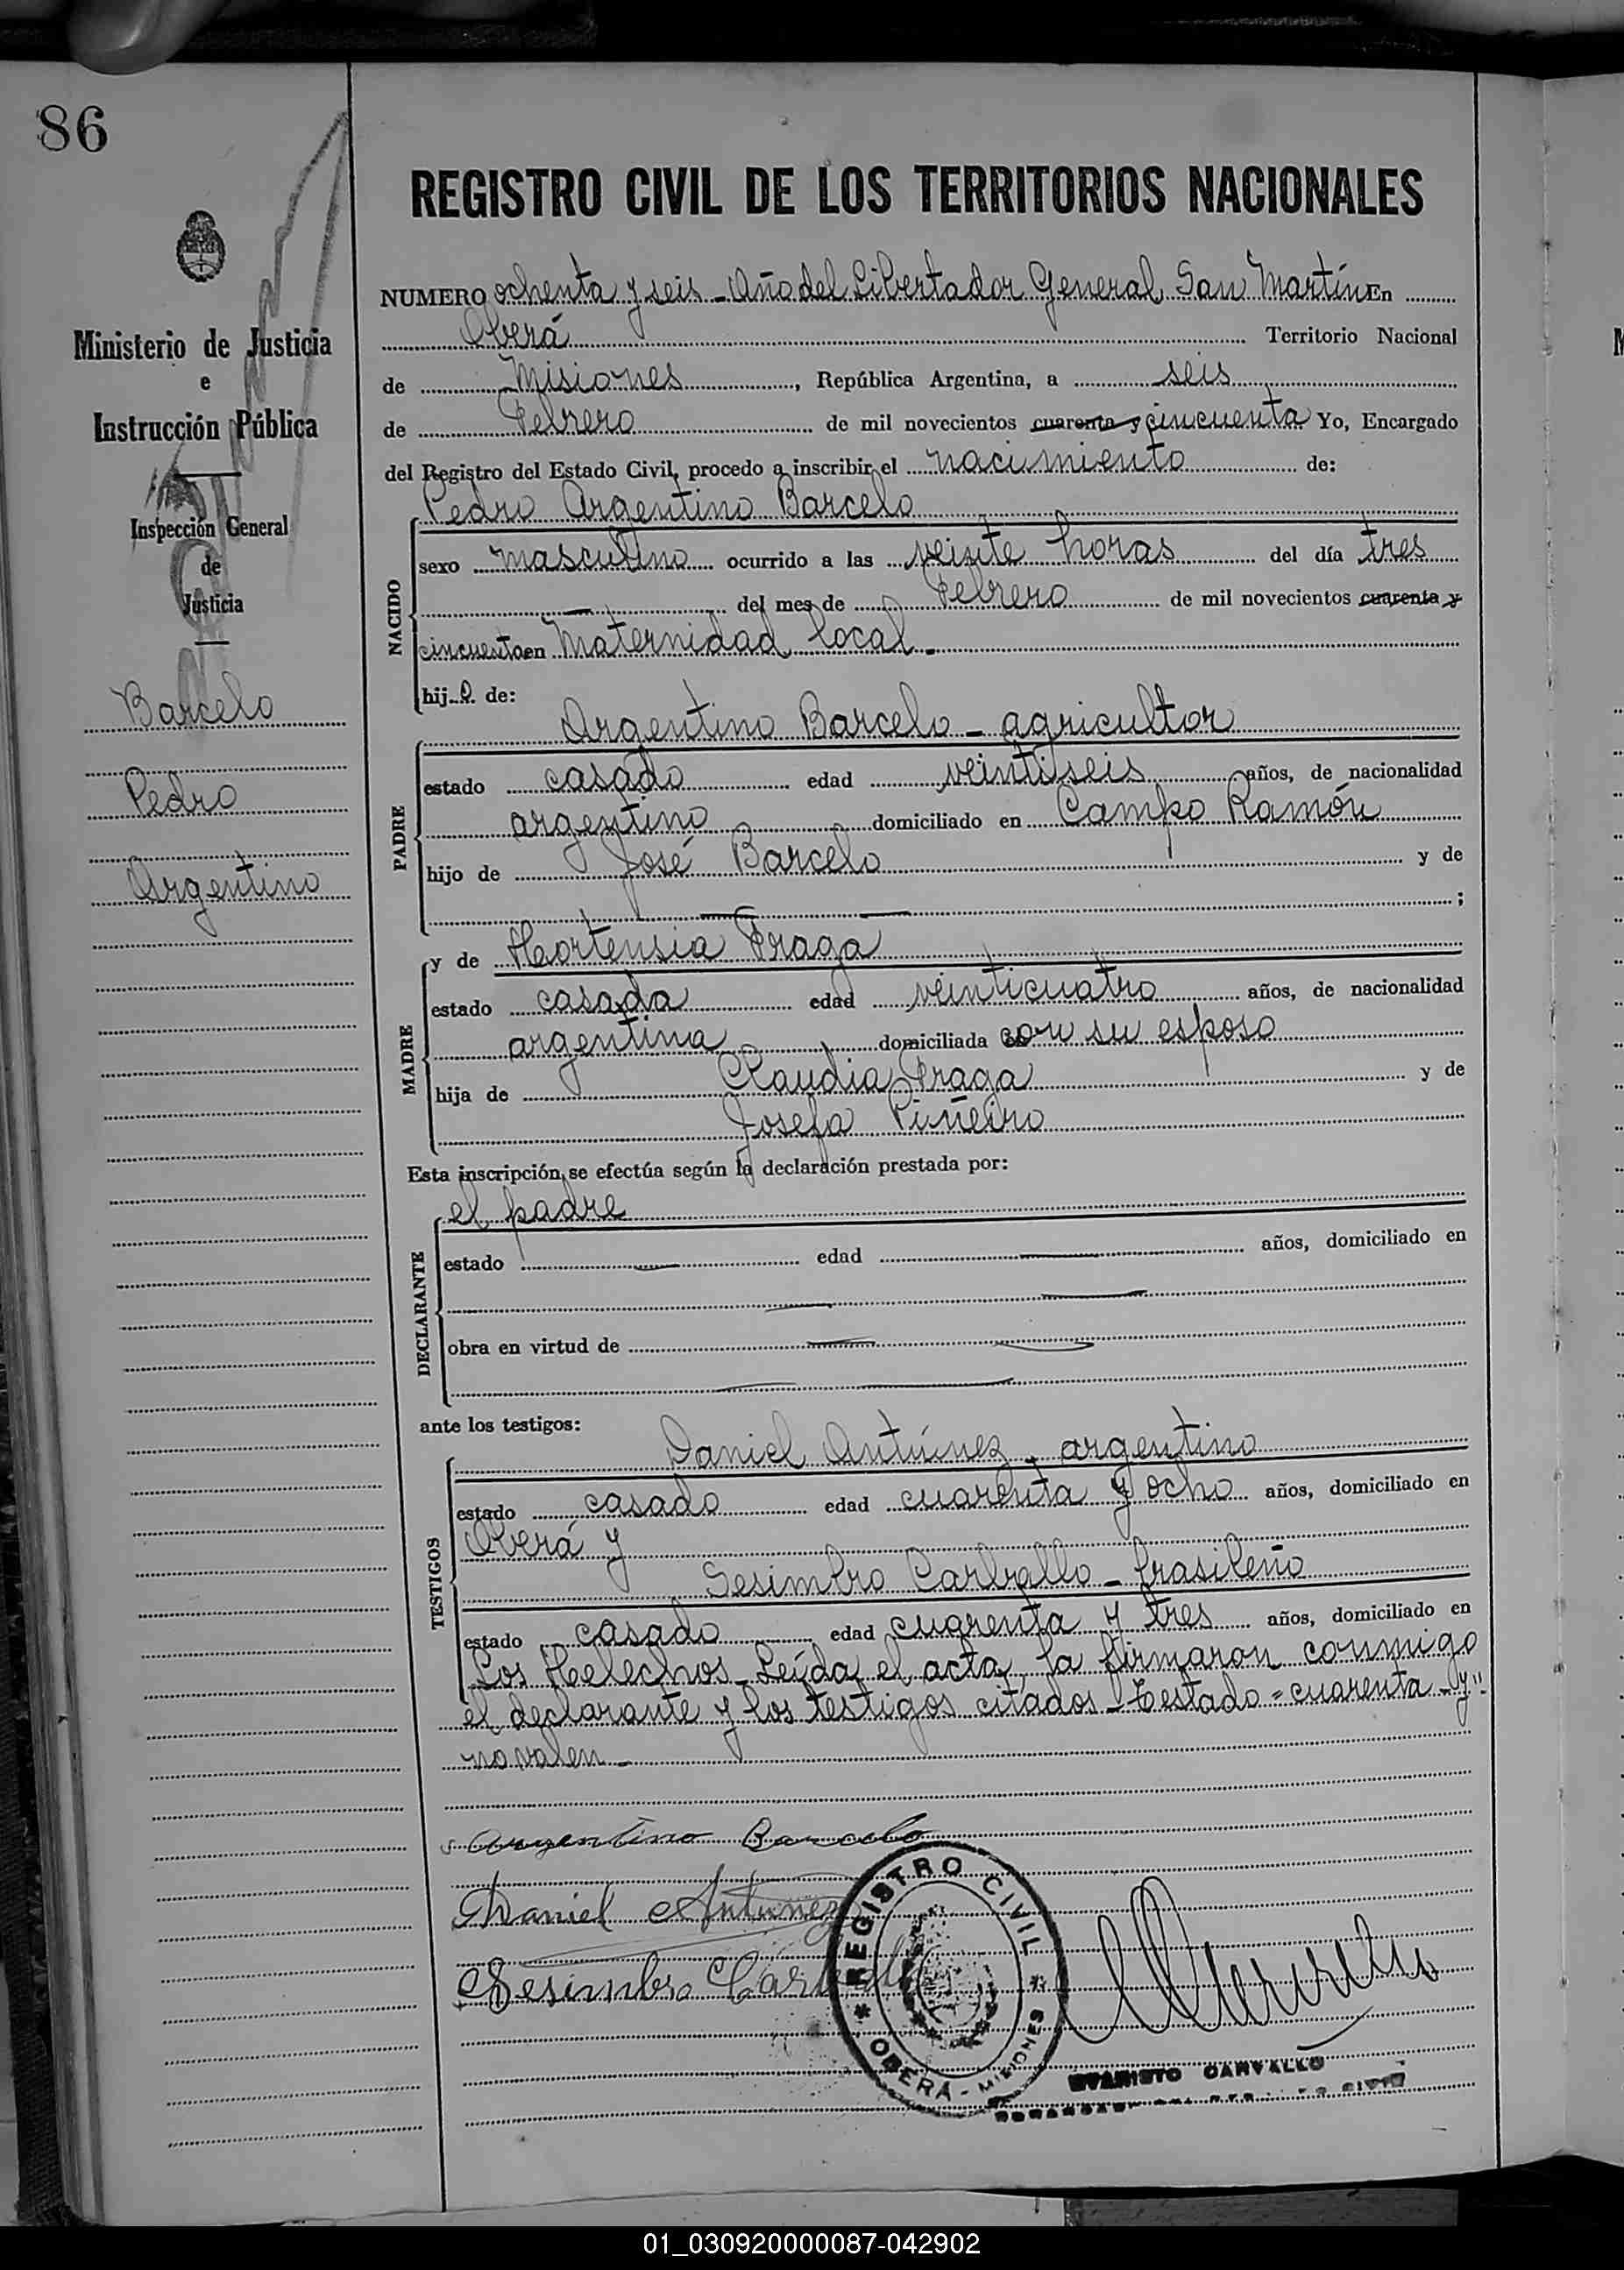 86
REGISTRO CIVIL DE LOS TERRITORIOS NACIONALES
Ministerio de Justicia
e
Instrucción Pública
Inspección General
de
Justicia
Barcelo
Pedro
Argentino
NUMERO ochenta y seis - Año del Libertador General San Martín En
Oberá Territorio Nacional
de Misiones, República Argentina, a seis
de Febrero de mil novecientos cuarenta y cincuenta Yo, Encargado
del Registro del Estado Civil, procedo a inscribir el nacimiento de:
Pedro Argentino Barcelo
NACIDO
sexo masculino ocurrido a las veinte horas del día tres
del mes de Febrero de mil novecientos cuarenta y
cincuenta en Maternidad local -
hijo de:
Argentino Barcelo - agricultor
PADRE
estado casado edad veintiseis años, de nacionalidad
argentino domiciliado en Campo Ramón
hijo de José Barcelo y de
;
y de Hortensia Fraga
MADRE
estado casada edad veinticuatro años, de nacionalidad
argentina domiciliada con su esposo
hija de Claudia Fraga y de
Josefa Piñeiro
Esta inscripción se efectúa según la declaración prestada por:
el padre
DECLARANTE
estado edad años, domiciliado en
obra en virtud de
ante los testigos:
Daniel Antúnez - argentino
TESTIGOS
estado casado edad cuarenta y ocho años, domiciliado en
Oberá y
Sesimbro Carballo - brasileño
estado casado edad cuarenta y tres años, domiciliado en
Los Helechos - Leída el acta, la firmaron conmigo
el declarante y los testigos citados - Testado = cuarenta - y"
no valen -
Argentino Barcelo
Daniel Antunez
Sesimbro
REGISTRO CIVIL
OBERÁ - MISIONES
CARVALLO
01_030920000087-042902